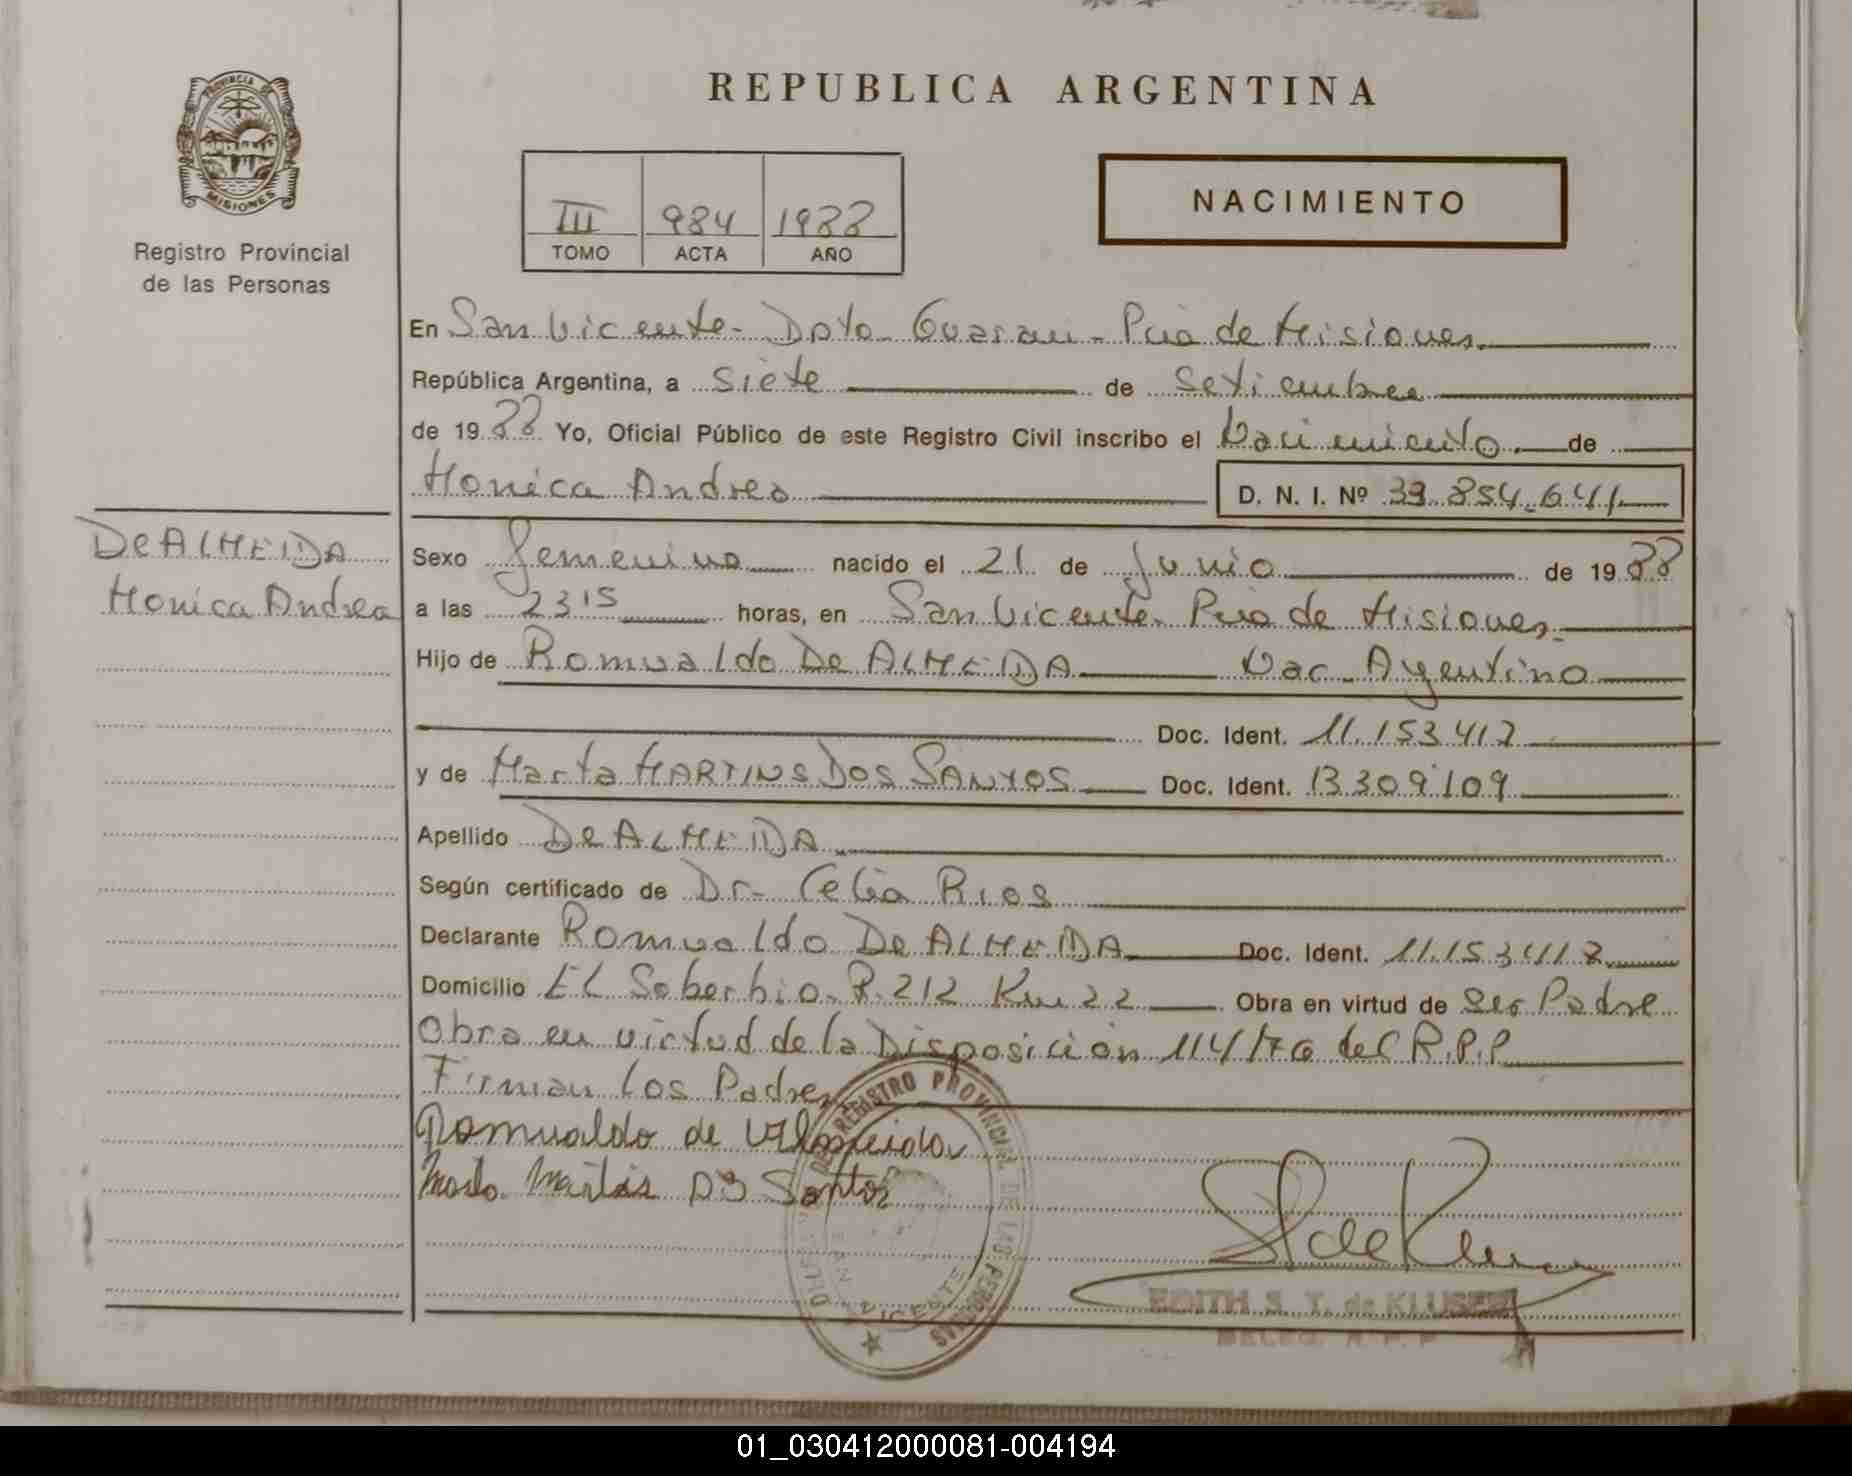 PROVINCIA DE
MISIONES
Registro Provincial
de las Personas
REPUBLICA ARGENTINA
III 984 1988
TOMO ACTA AÑO
NACIMIENTO
En San Vicente - Dpto - Guarani - Pcia de Misiones.
República Argentina, a siete de setiembre
de 1988 Yo, Oficial Público de este Registro Civil inscribo el Nacimiento. de
Monica Andrea D. N. I. Nº 33.854.641
De ALMEIDA
Monica Andrea
Sexo femenino nacido el 21 de junio de 1988
a las 23 15 horas, en San Vicente. Pcia de Misiones.
Hijo de Romualdo De ALMEIDA Nac. Argentino
Doc. Ident. 11.153 417
y de Marta MARTINS DOS SANTOS Doc. Ident. 13309109
Apellido De ALMEIDA
Según certificado de Dr. Celia Rios
Declarante Romualdo De ALMEIDA Doc. Ident. 11.153
Domicilio El Soberbio. R. 212 Km 22 Obra en virtud de ser Padre
Obra en virtud de la Disposición 114/76 del R.P.P
Firman los Padres
Romualdo de Almeida
Martins DS Santos
REGISTRO PROVINCIAL DE LAS PERSONAS
SAN VICENTE
EDITH S. T. de KLUSENER
DELEG. R. P. P
01_030412000081-004194